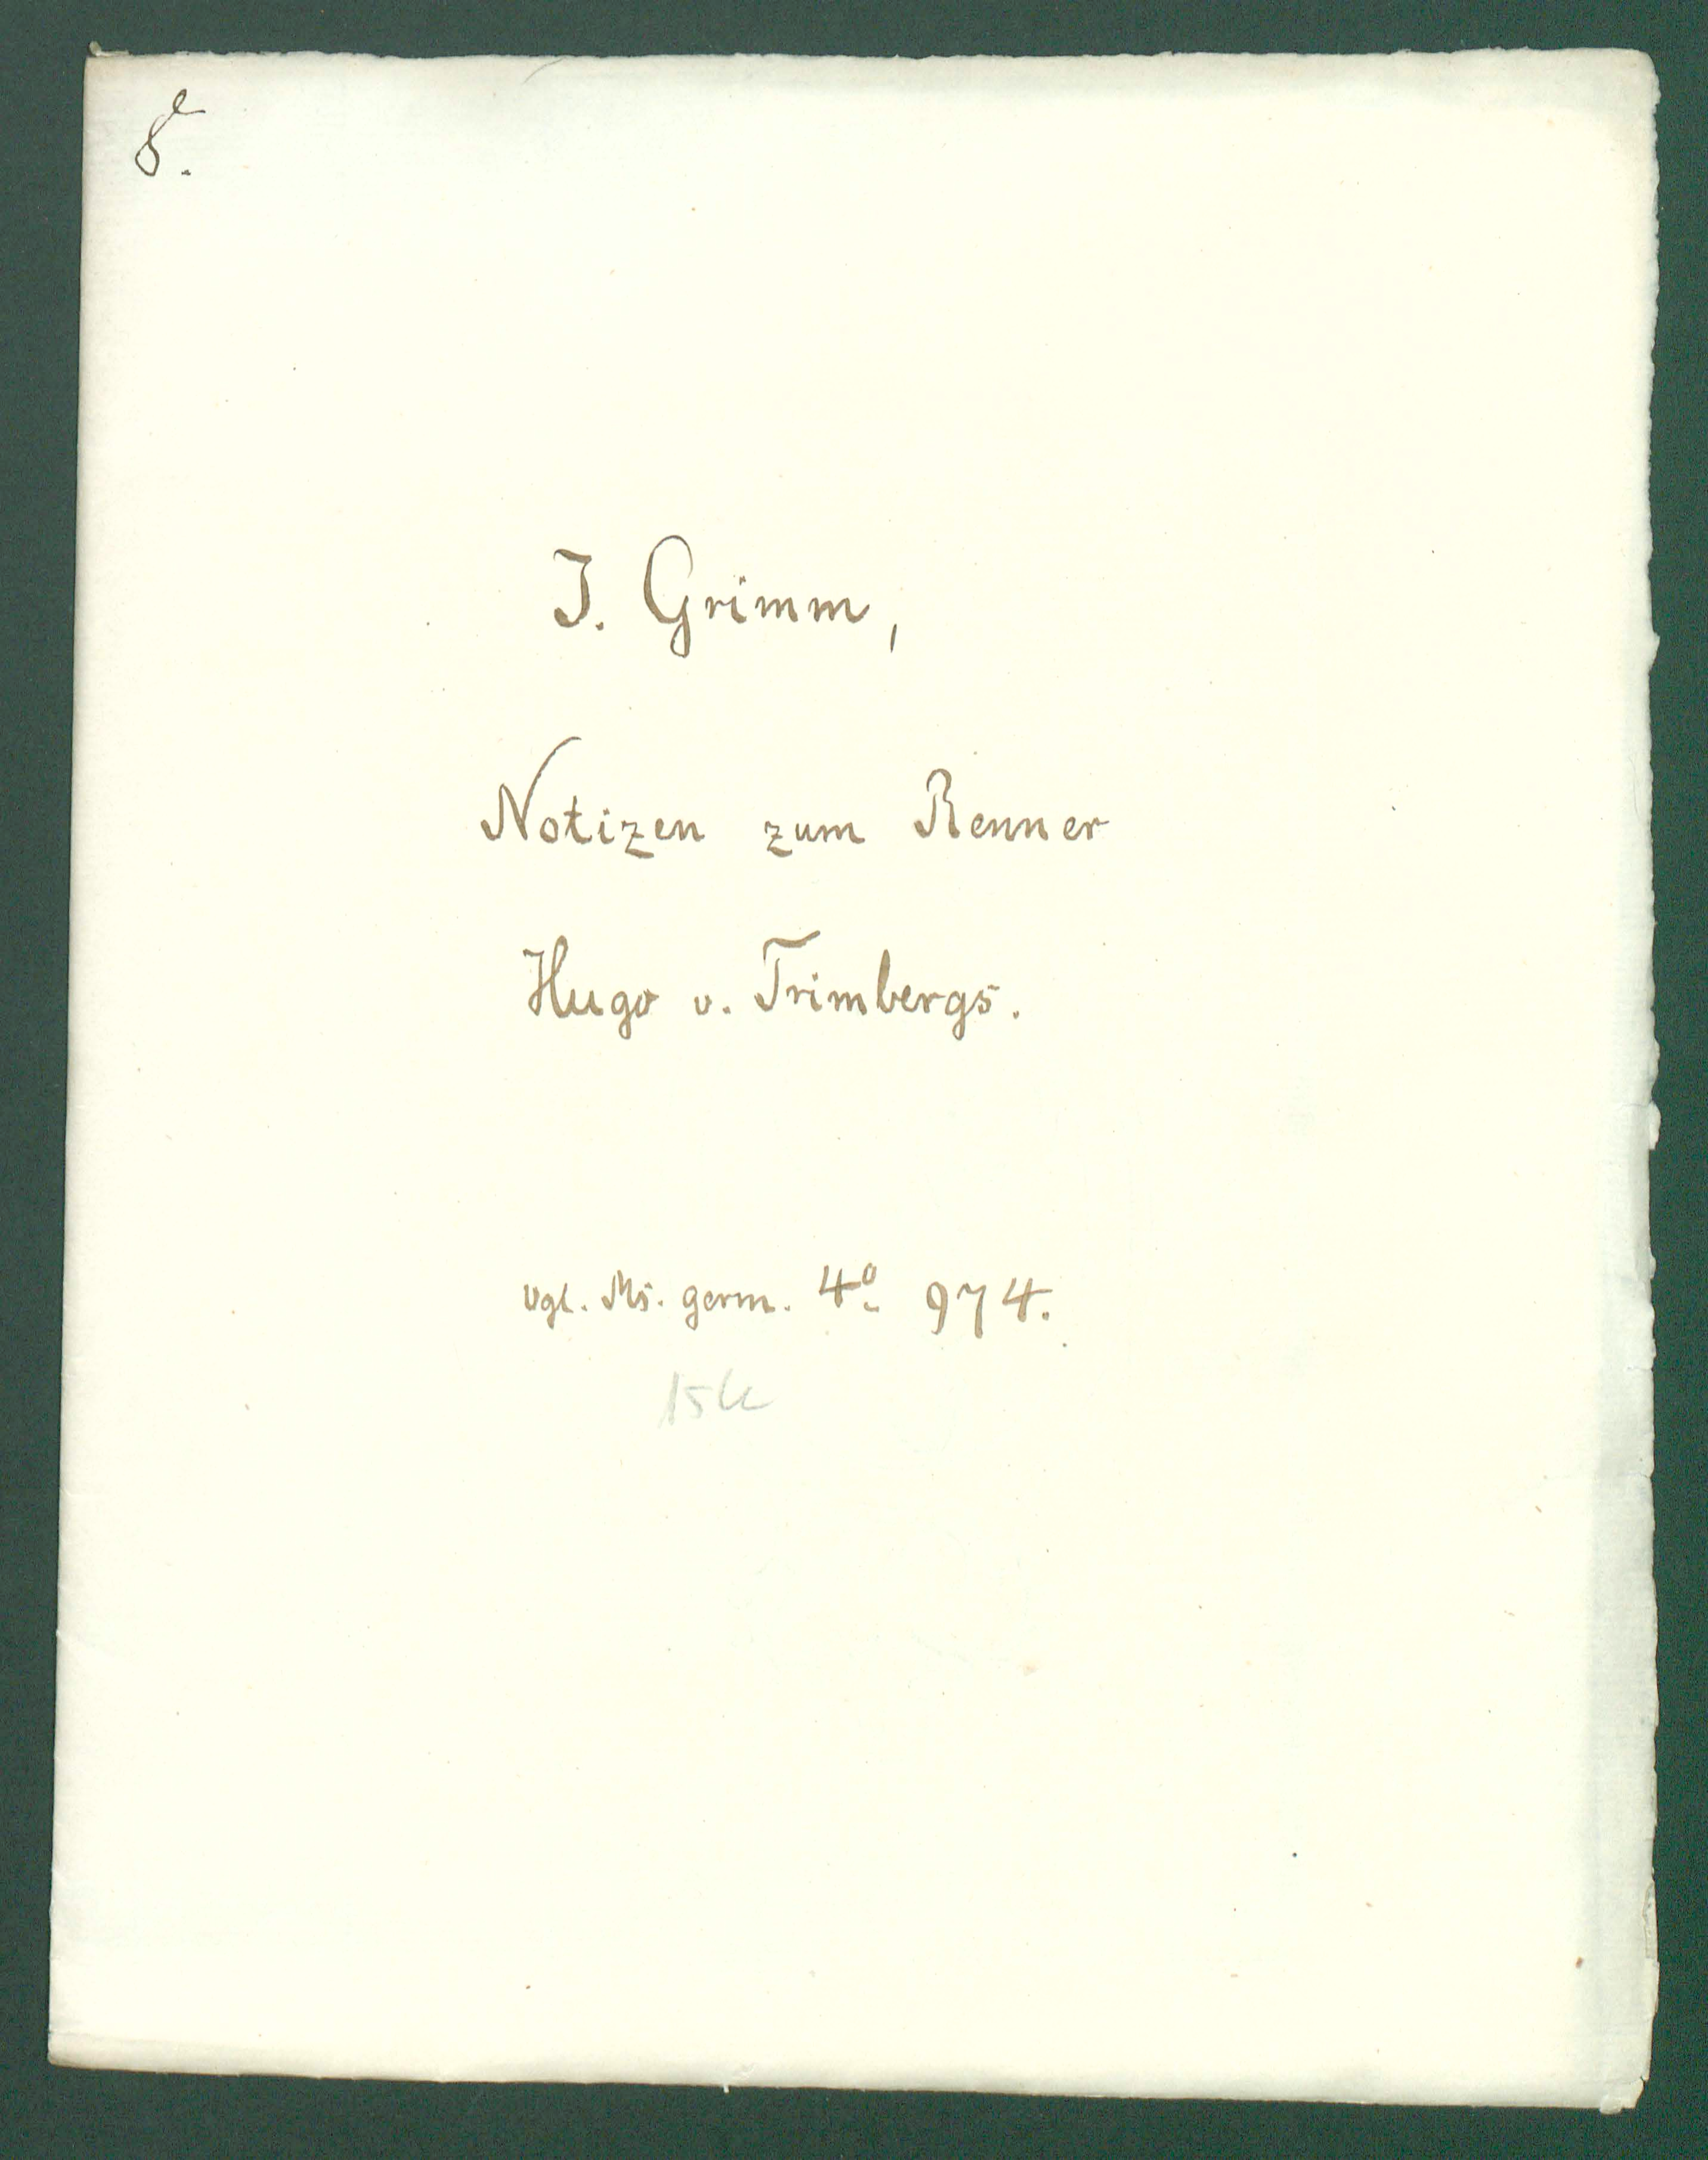 8.
J. Grimm,
Notizen zum Renner
Hugo v. Trimbergs.
vgl. Ms. germ. 4º 974.